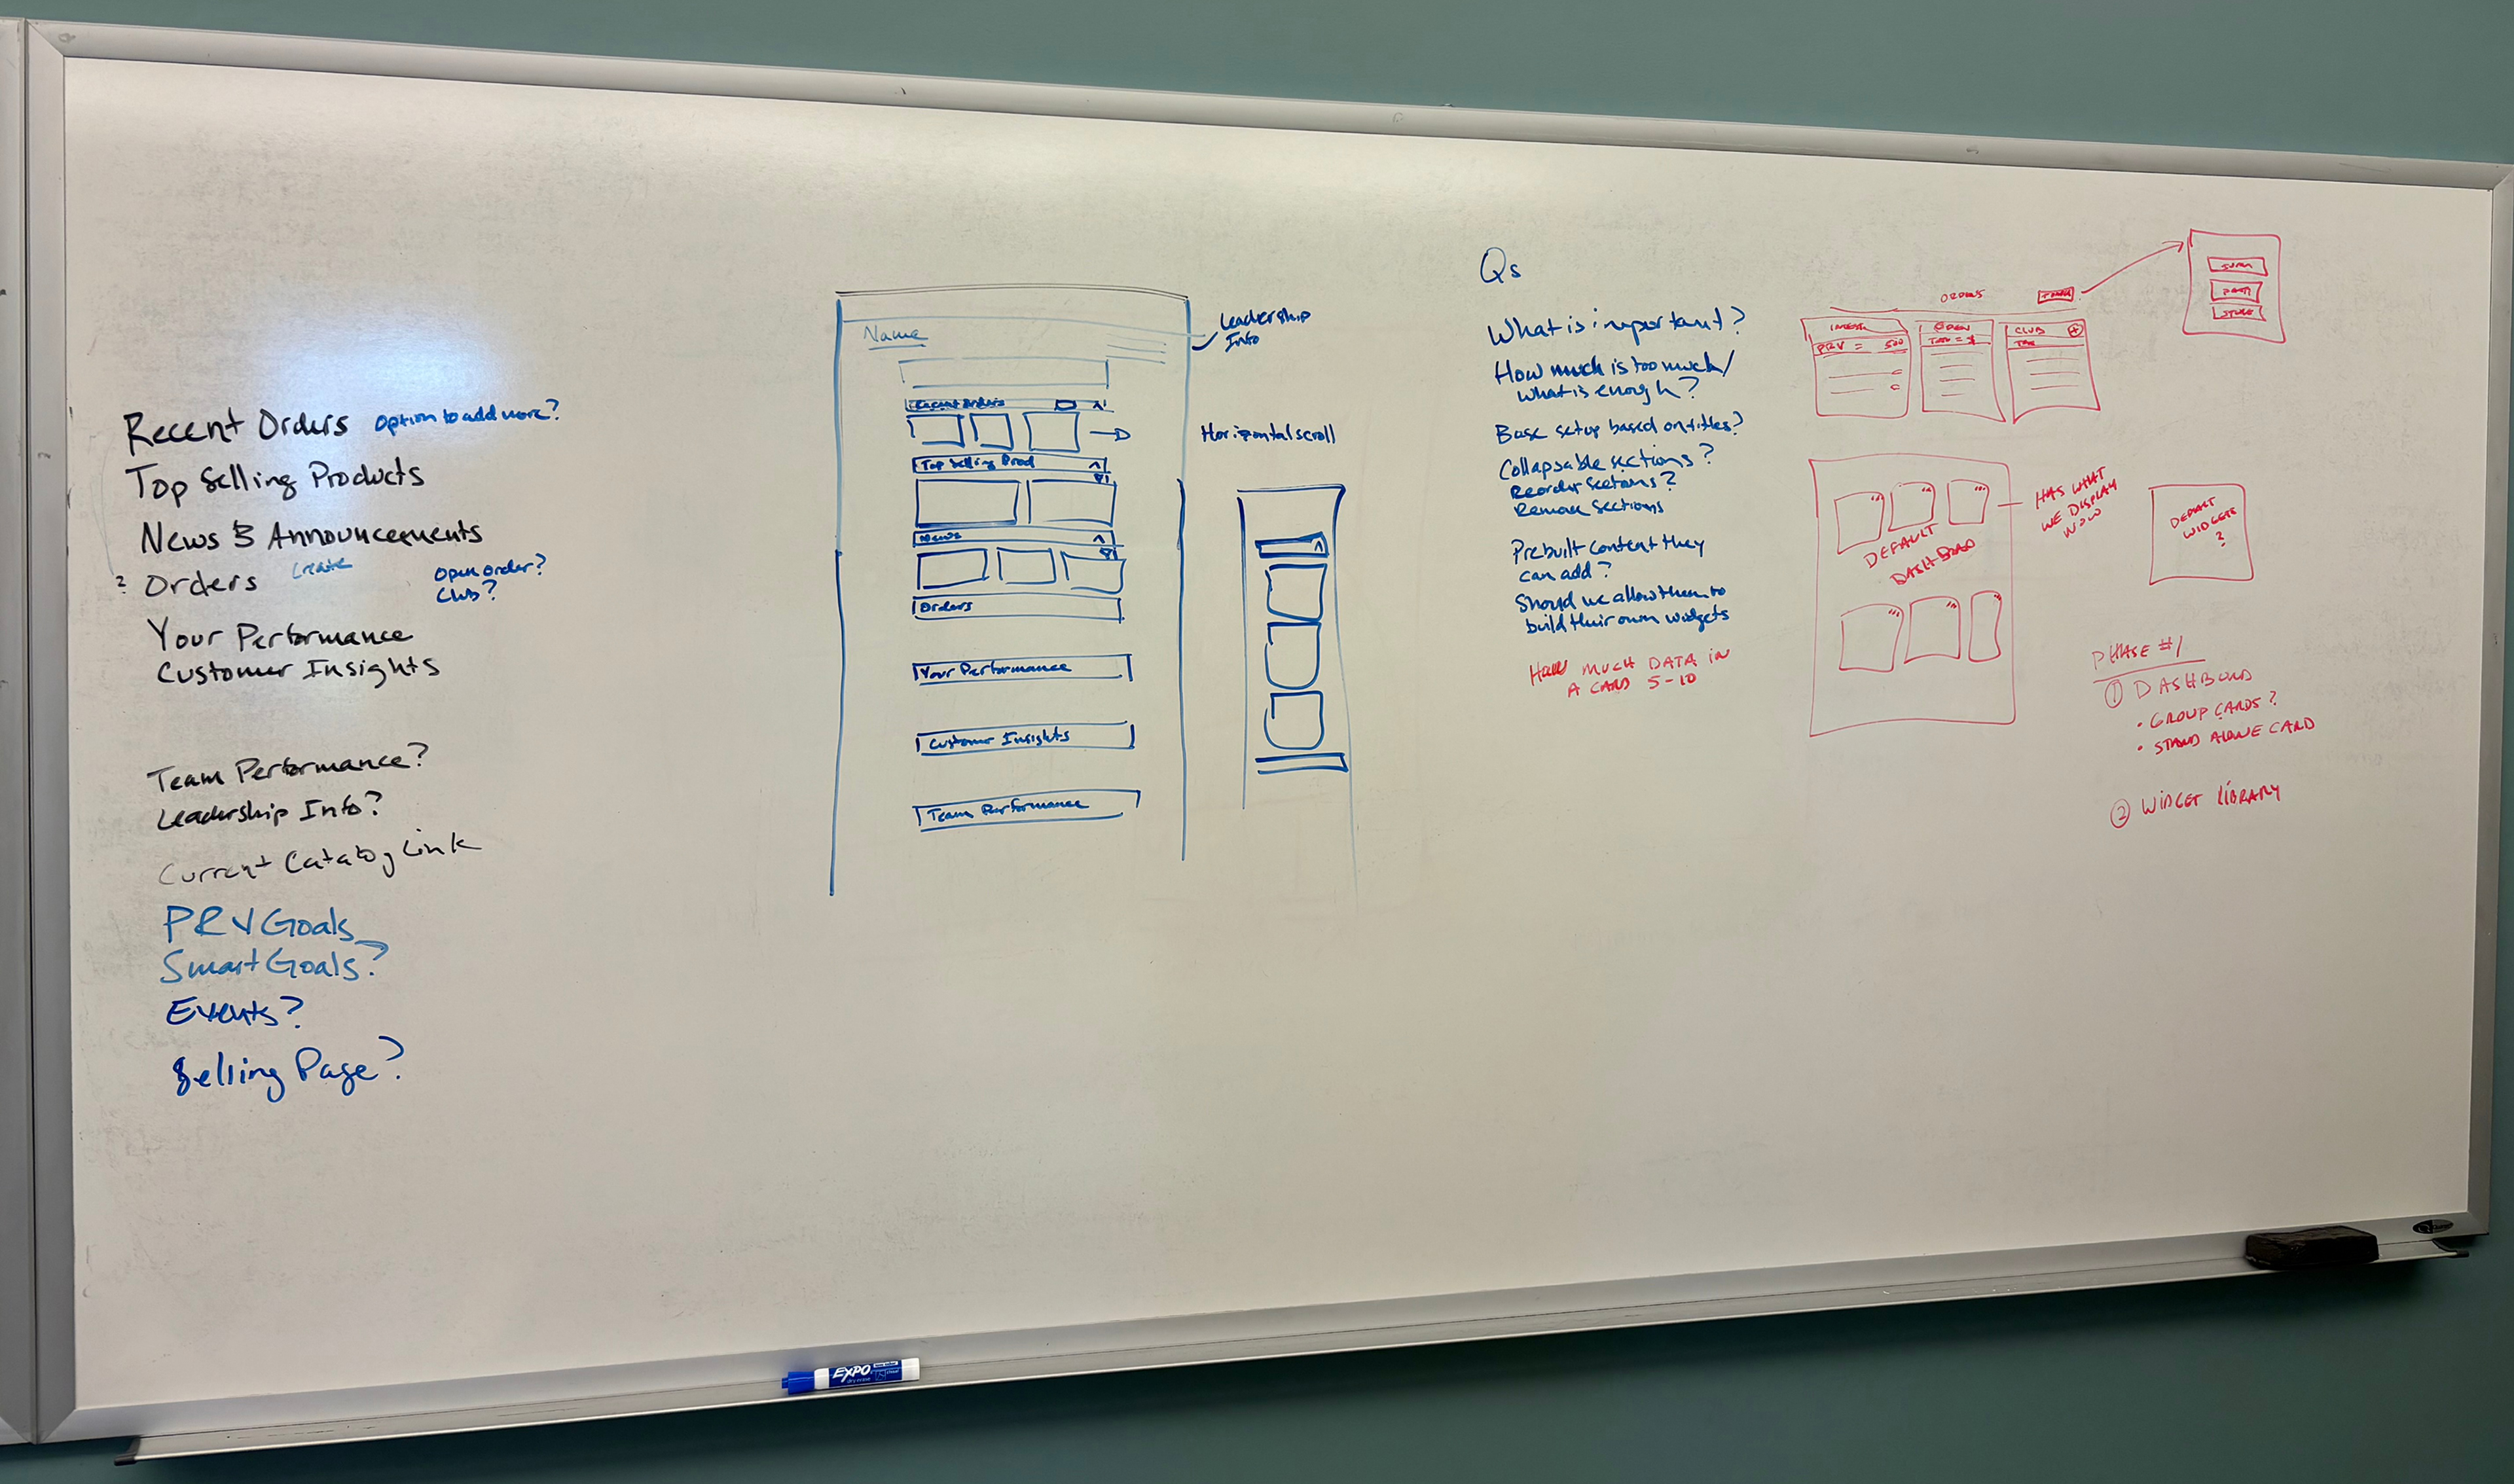 Recent Orders option to add more?
Top Selling Products
News & Announcements
? Orders Create Open order?
Club?
Your Performance
Customer Insights
Team Performance?
Leadership Info?
Current Catalog Link
PRV Goals
Smart Goals?
Events?
Selling Page?
Name
Leadership
Info
Recent Orders
Horizontal scroll
Top Selling Prod
News
Orders
Your Performance
Customer Insights
Team Performance
Qs
What is important?
How much is too much/
what is enough?
Base setup based on titles?
Collapsable sections?
Reorder sections?
Remove sections
Prebuilt content they
can add?
Should we allow them to
build their own widgets
How MUCH DATA IN
A CARD 5-10
ORDERS
OPEN
CLUB
PRV = 500
STORE
HAS WHAT
WE DISPLAY
NOW
DEFAULT
DASHBOAD
WIDGETS
?
PHASE #1
1 DASHBOARD
• GROUP CARDS?
• STAND ALONE CARD
2 WIDGET LIBRARY
EXPO
dry erase